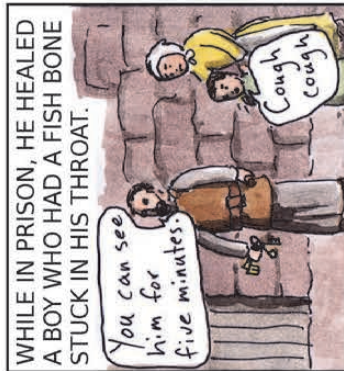 WHILE IN PRISON, HE HEALED
A BOY WHO HAD A FISH BONE
STUCK IN HIS THROAT.
You can see
him for
five minutes.
Cough
cough